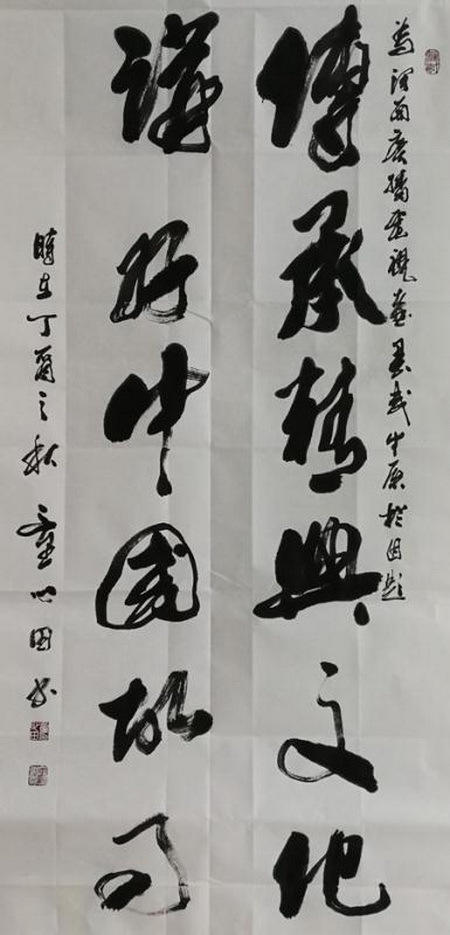 為河南广播電視臺墨武中原栏目題
傳承經典文化
講好中國故事
時在丁酉之秋 童心田书